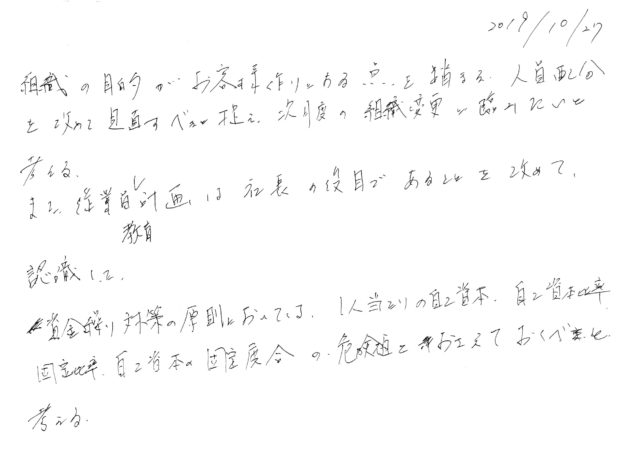 2019/10/27
組織の目的がお客様作りにある点を踏まえ、人員配分
を改めて見直すべきと捉え、次月度の組織変更に臨みたいと
考える。
また、従業員教育計画は社長の役目であることを改めて、
認識した。
資金繰り対策の原則においている、1人当たりの自己資本、自己資本比率
固定比率、自己資本の固定度合の危険値をおさえておくべきと
考える。